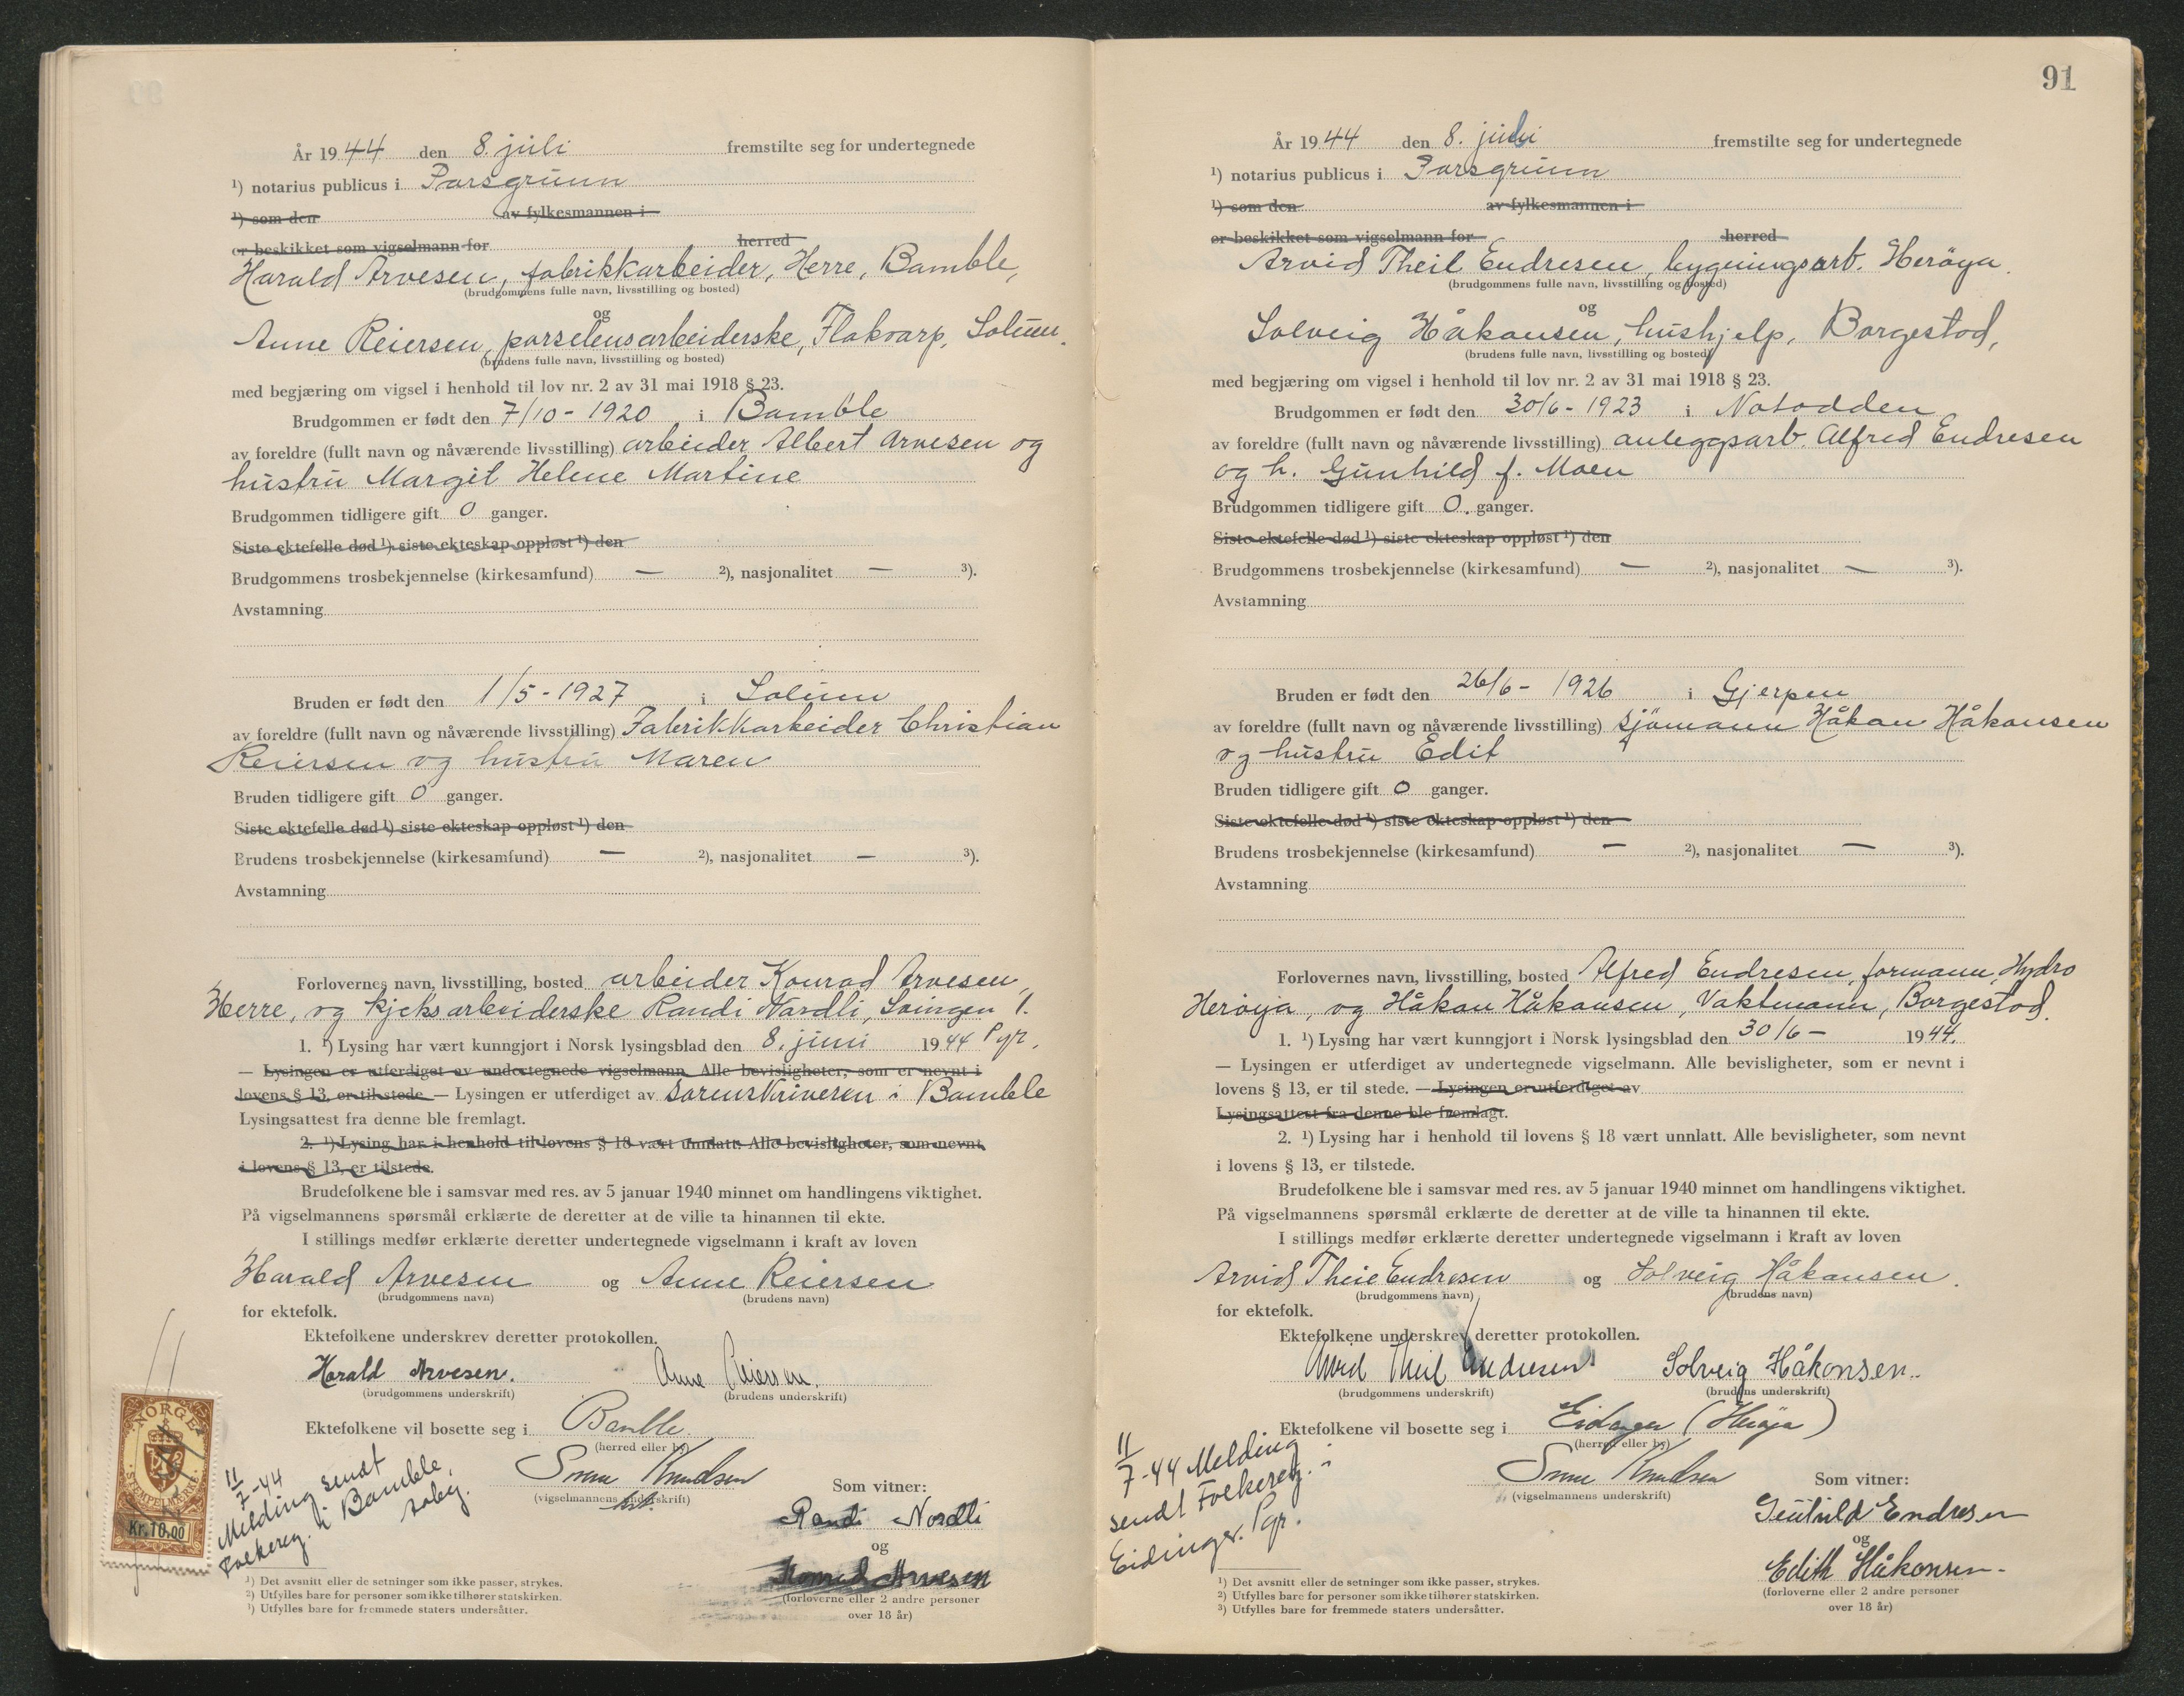 År 1944 den 8. juli fremstilte seg for undertegnede
¹) notarius publicus i Porsgrunn
¹) som den av fylkesmannen i
er beskikket som vigselmann for herred
Harald Arvesen, fabrikkarbeider, Herre, Bamble,
(brudgommens fulle navn, livsstilling og bosted)
og
Anne Reiersen, porselensarbeiderske, Flakvarp, Solum.
(brudens fulle navn, livsstilling og bosted)
med begjæring om vigsel i henhold til lov nr. 2 av 31 mai 1918 § 23.
Brudgommen er født den 7/10 - 1920 i Bamble
av foreldre (fullt navn og nåværende livsstilling) arbeider Albert Arvesen og
hustru Margit Helene Martine
Brudgommen tidligere gift 0 ganger.
Siste ektefelle død ¹) siste ekteskap oppløst ¹) den
Brudgommens trosbekjennelse (kirkesamfund) — ²), nasjonalitet — ³).
Avstamning
Bruden er født den 1/5 - 1927 i Solum
av foreldre (fullt navn og nåværende livsstilling) Fabrikkarbeider Christian
Reiersen og hustru Maren
Bruden tidligere gift 0 ganger.
Siste ektefelle død ¹) siste ekteskap oppløst ¹) den
Brudens trosbekjennelse (kirkesamfund) — ²), nasjonalitet — ³).
Avstamning
Forlovernes navn, livsstilling, bosted arbeider Konrad Arvesen,
Herre, og kjeksarbeiderske Randi Nordli, Svingen 1.
Pgr.
1. ¹) Lysing har vært kunngjort i Norsk lysingsblad den 8. juni 1944
— Lysingen er utferdiget av undertegnede vigselmann. Alle bevisligheter, som er nevnt i
lovens § 13, er til stede. — Lysingen er utferdiget av sorenskriveren i Bamble
Lysingsattest fra denne ble fremlagt.
2. ¹) Lysing har i henhold til lovens § 18 vært unnlatt. Alle bevisligheter, som nevnt
i lovens § 13, er tilstede.
Brudefolkene ble i samsvar med res. av 5 januar 1940 minnet om handlingens viktighet.
På vigselmannens spørsmål erklærte de deretter at de ville ta hinannen til ekte.
I stillings medfør erklærte deretter undertegnede vigselmann i kraft av loven
Harald Arvesen og Anne Reiersen
(brudgommens navn) (brudens navn)
for ektefolk.
Ektefolkene underskrev deretter protokollen.
Harald Arvesen. Anne Reiersen.
(brudgommens underskrift) (brudens underskrift)
Ektefolkene vil bosette seg i Bamble
(herred eller by)
Knudsen
(vigselmannens underskrift)
Som vitner:
Randi Nordli
og
Konrad Arvesen
(forloverne eller 2 andre personer
over 18 år)
NORGE
STEMPELMERKE
Kr. 10,00
11/7-44
Melding sendt
Folkereg. i Bamble,
¹) Det avsnitt eller de setninger som ikke passer, strykes.
²) Utfylles bare for personer som ikke tilhører statskirken.
³) Utfylles bare for fremmede staters undersåtter.
91
År 1944 den 8. juli fremstilte seg for undertegnede
¹) notarius publicus i Porsgrunn
¹) som den av fylkesmannen i
er beskikket som vigselmann for herred
Arvid Theil Endresen, bygningsarb. Herøya.
(brudgommens fulle navn, livsstilling og bosted)
og
Solveig Håkansen, hushjelp, Borgestad,
(brudens fulle navn, livsstilling og bosted)
med begjæring om vigsel i henhold til lov nr. 2 av 31 mai 1918 § 23.
Brudgommen er født den 30/6 - 1923 i Notodden
av foreldre (fullt navn og nåværende livsstilling) anleggsarb. Alfred Endresen
og h. Gunhild f. Moen
Brudgommen tidligere gift 0. ganger.
Siste ektefelle død ¹) siste ekteskap oppløst ¹) den
Brudgommens trosbekjennelse (kirkesamfund) — ²), nasjonalitet — ³).
Avstamning
Bruden er født den 26/6 - 1926 i Gjerpen
av foreldre (fullt navn og nåværende livsstilling) sjömann Håkan Håkansen
og hustru Edit
Bruden tidligere gift 0 ganger.
Siste ektefelle død ¹) siste ekteskap oppløst ¹) den
Brudens trosbekjennelse (kirkesamfund) — ²), nasjonalitet — ³).
Avstamning
Forlovernes navn, livsstilling, bosted Alfred Endresen, formann, Hydro
Herøya, og Håkan Håkansen, Vaktmann, Borgestad.
1. ¹) Lysing har vært kunngjort i Norsk lysingsblad den 30/6 - 1944.
— Lysingen er utferdiget av undertegnede vigselmann. Alle bevisligheter, som er nevnt i
lovens § 13, er til stede. — Lysingen er utferdiget av
Lysingsattest fra denne ble fremlagt.
2. ¹) Lysing har i henhold til lovens § 18 vært unnlatt. Alle bevisligheter, som nevnt
i lovens § 13, er tilstede.
Brudefolkene ble i samsvar med res. av 5 januar 1940 minnet om handlingens viktighet.
På vigselmannens spørsmål erklærte de deretter at de ville ta hinannen til ekte.
I stillings medfør erklærte deretter undertegnede vigselmann i kraft av loven
Arvid Theil Endresen og Solveig Håkansen.
(brudgommens navn) (brudens navn)
for ektefolk.
Ektefolkene underskrev deretter protokollen.
Arvid Theil Endresen Solveig Håkonsen.
(brudgommens underskrift) (brudens underskrift)
Ektefolkene vil bosette seg i Eidanger (Herøya)
(herred eller by)
Knudsen
(vigselmannens underskrift)
Som vitner:
Gunhild Endresen
og
Edith Håkonsen
(forloverne eller 2 andre personer
over 18 år)
11/7-44 Melding
sendt Folkereg. i
Eidanger. Pgr.
¹) Det avsnitt eller de setninger som ikke passer, strykes.
²) Utfylles bare for personer som ikke tilhører statskirken.
³) Utfylles bare for fremmede staters undersåtter.